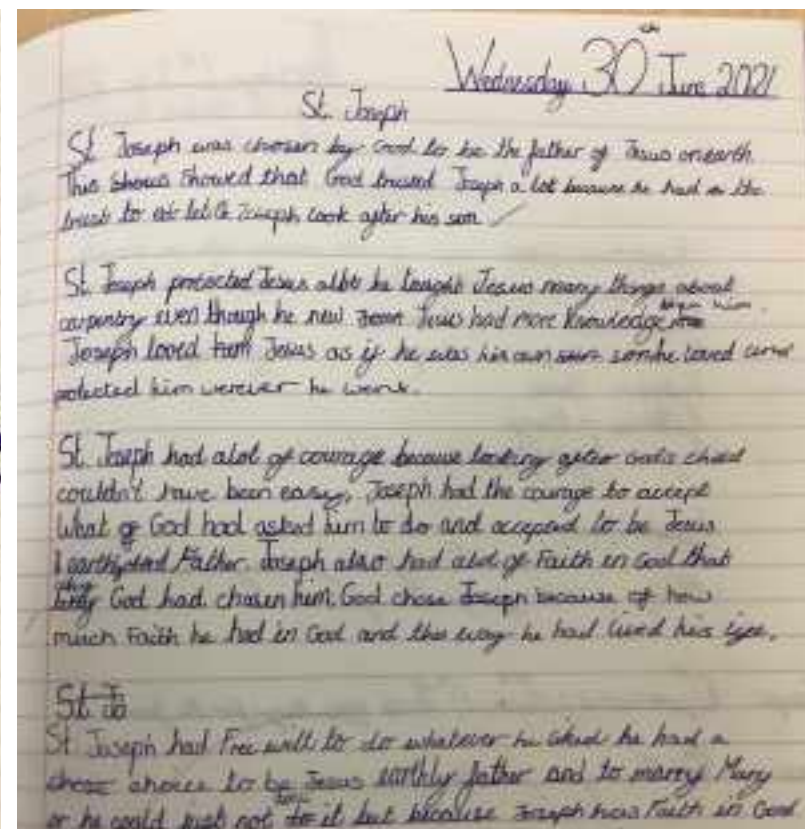 Wednesday 30th June 2021
St Joseph
St Joseph was chosen by God to be the father of Jesus on earth.
This shows showed that God trusted Joseph a lot because he had the
trust to let Joseph look after his son
St Joseph protected Jesus he taught Jesus many things about
carpentry even though he new Jesus had more knowledge than him.
Joseph loved Jesus as if he was his own son he loved and
protected him werever he went.
St Joseph had alot of courage because looking after God's child
couldn't have been easy, Joseph had the courage to accept
what God had asked him to do and accepted to be Jesus
earthly Father. Joseph also had alot of Faith in God that
God had chosen him. God chose Joseph because of how
much Faith he had in God and the way he had lived his life.
St Jo
St Joseph had Free will to do whatever he liked he had a
choice to be Jesus earthly father and to marry Mary
or he could just not do it but because Joseph has Faith in God